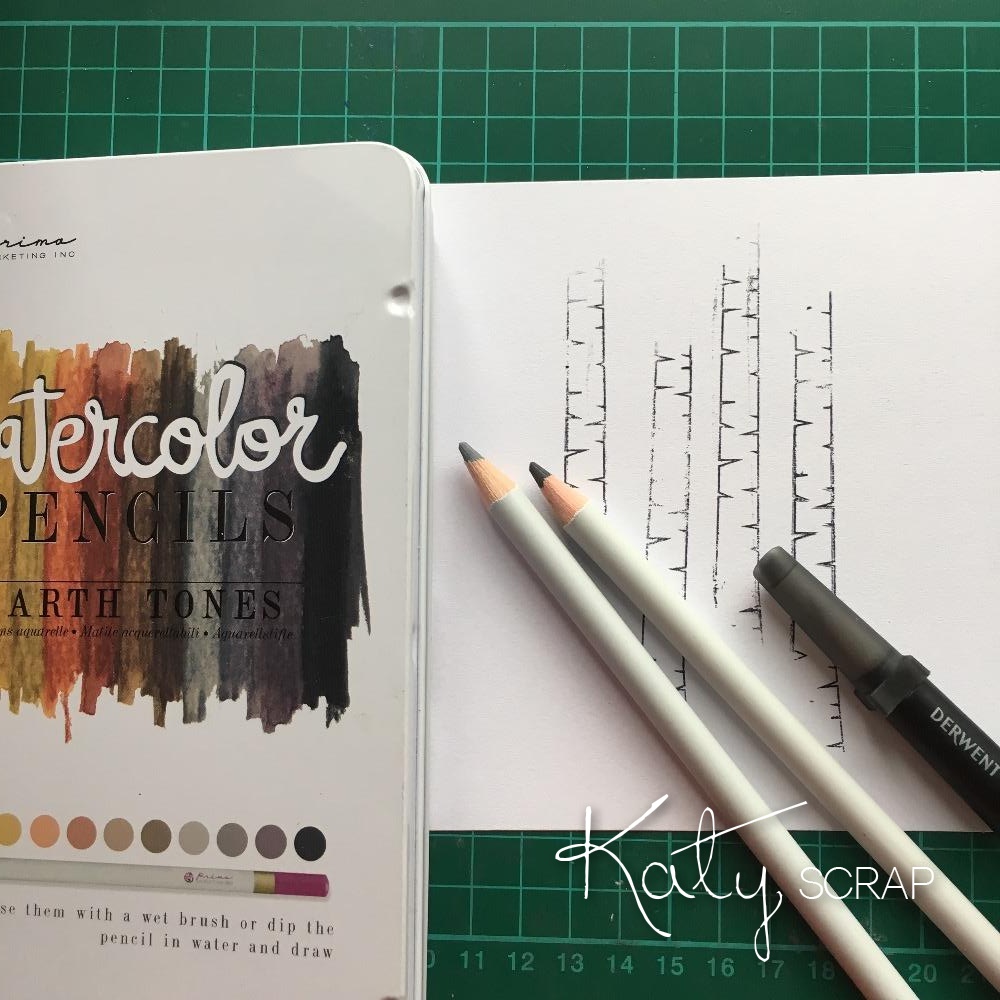 rima
RKETING INC
atercolor
PENCILS
ARTH TONES
ns aquarelle • Matite acquerellabili • Aquarellstifte
Prima
se them with a wet brush or dip the
pencil in water and draw
DERWENT
Katy SCRAP
0 11 12 13 14 15 16 17 18 20